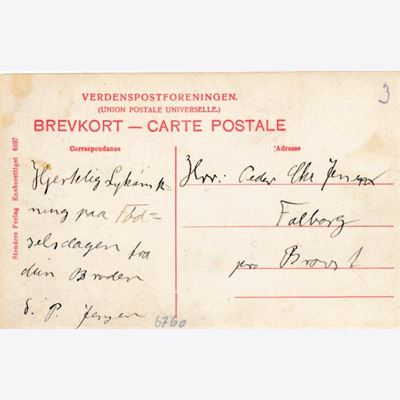 VERDENSPOSTFORENINGEN.
(UNION POSTALE UNIVERSELLE.)
BREVKORT — CARTE POSTALE
3
Correspondance
Adresse
Stenders Forlag Eneberettiget 6927
Hjertelig Lykønsk-
ning paa Fød-
selsdagen fra
din Broder
S. P. Jensen
Hrr: Chr Jensen
Falborg
pr Brovst
6760